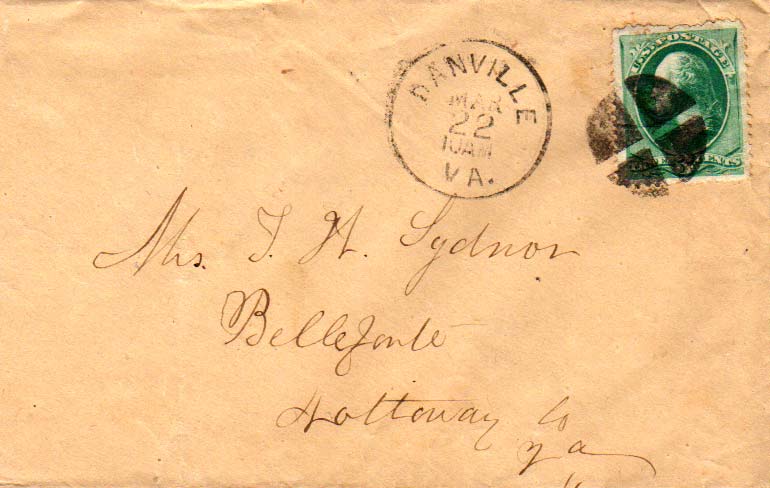 DANVILLE
MAR
22
10AM
VA.
U.S. POSTAGE
CENTS
Mrs. T. H. Sydnor
Bellefonte
Nottoway Co
Va